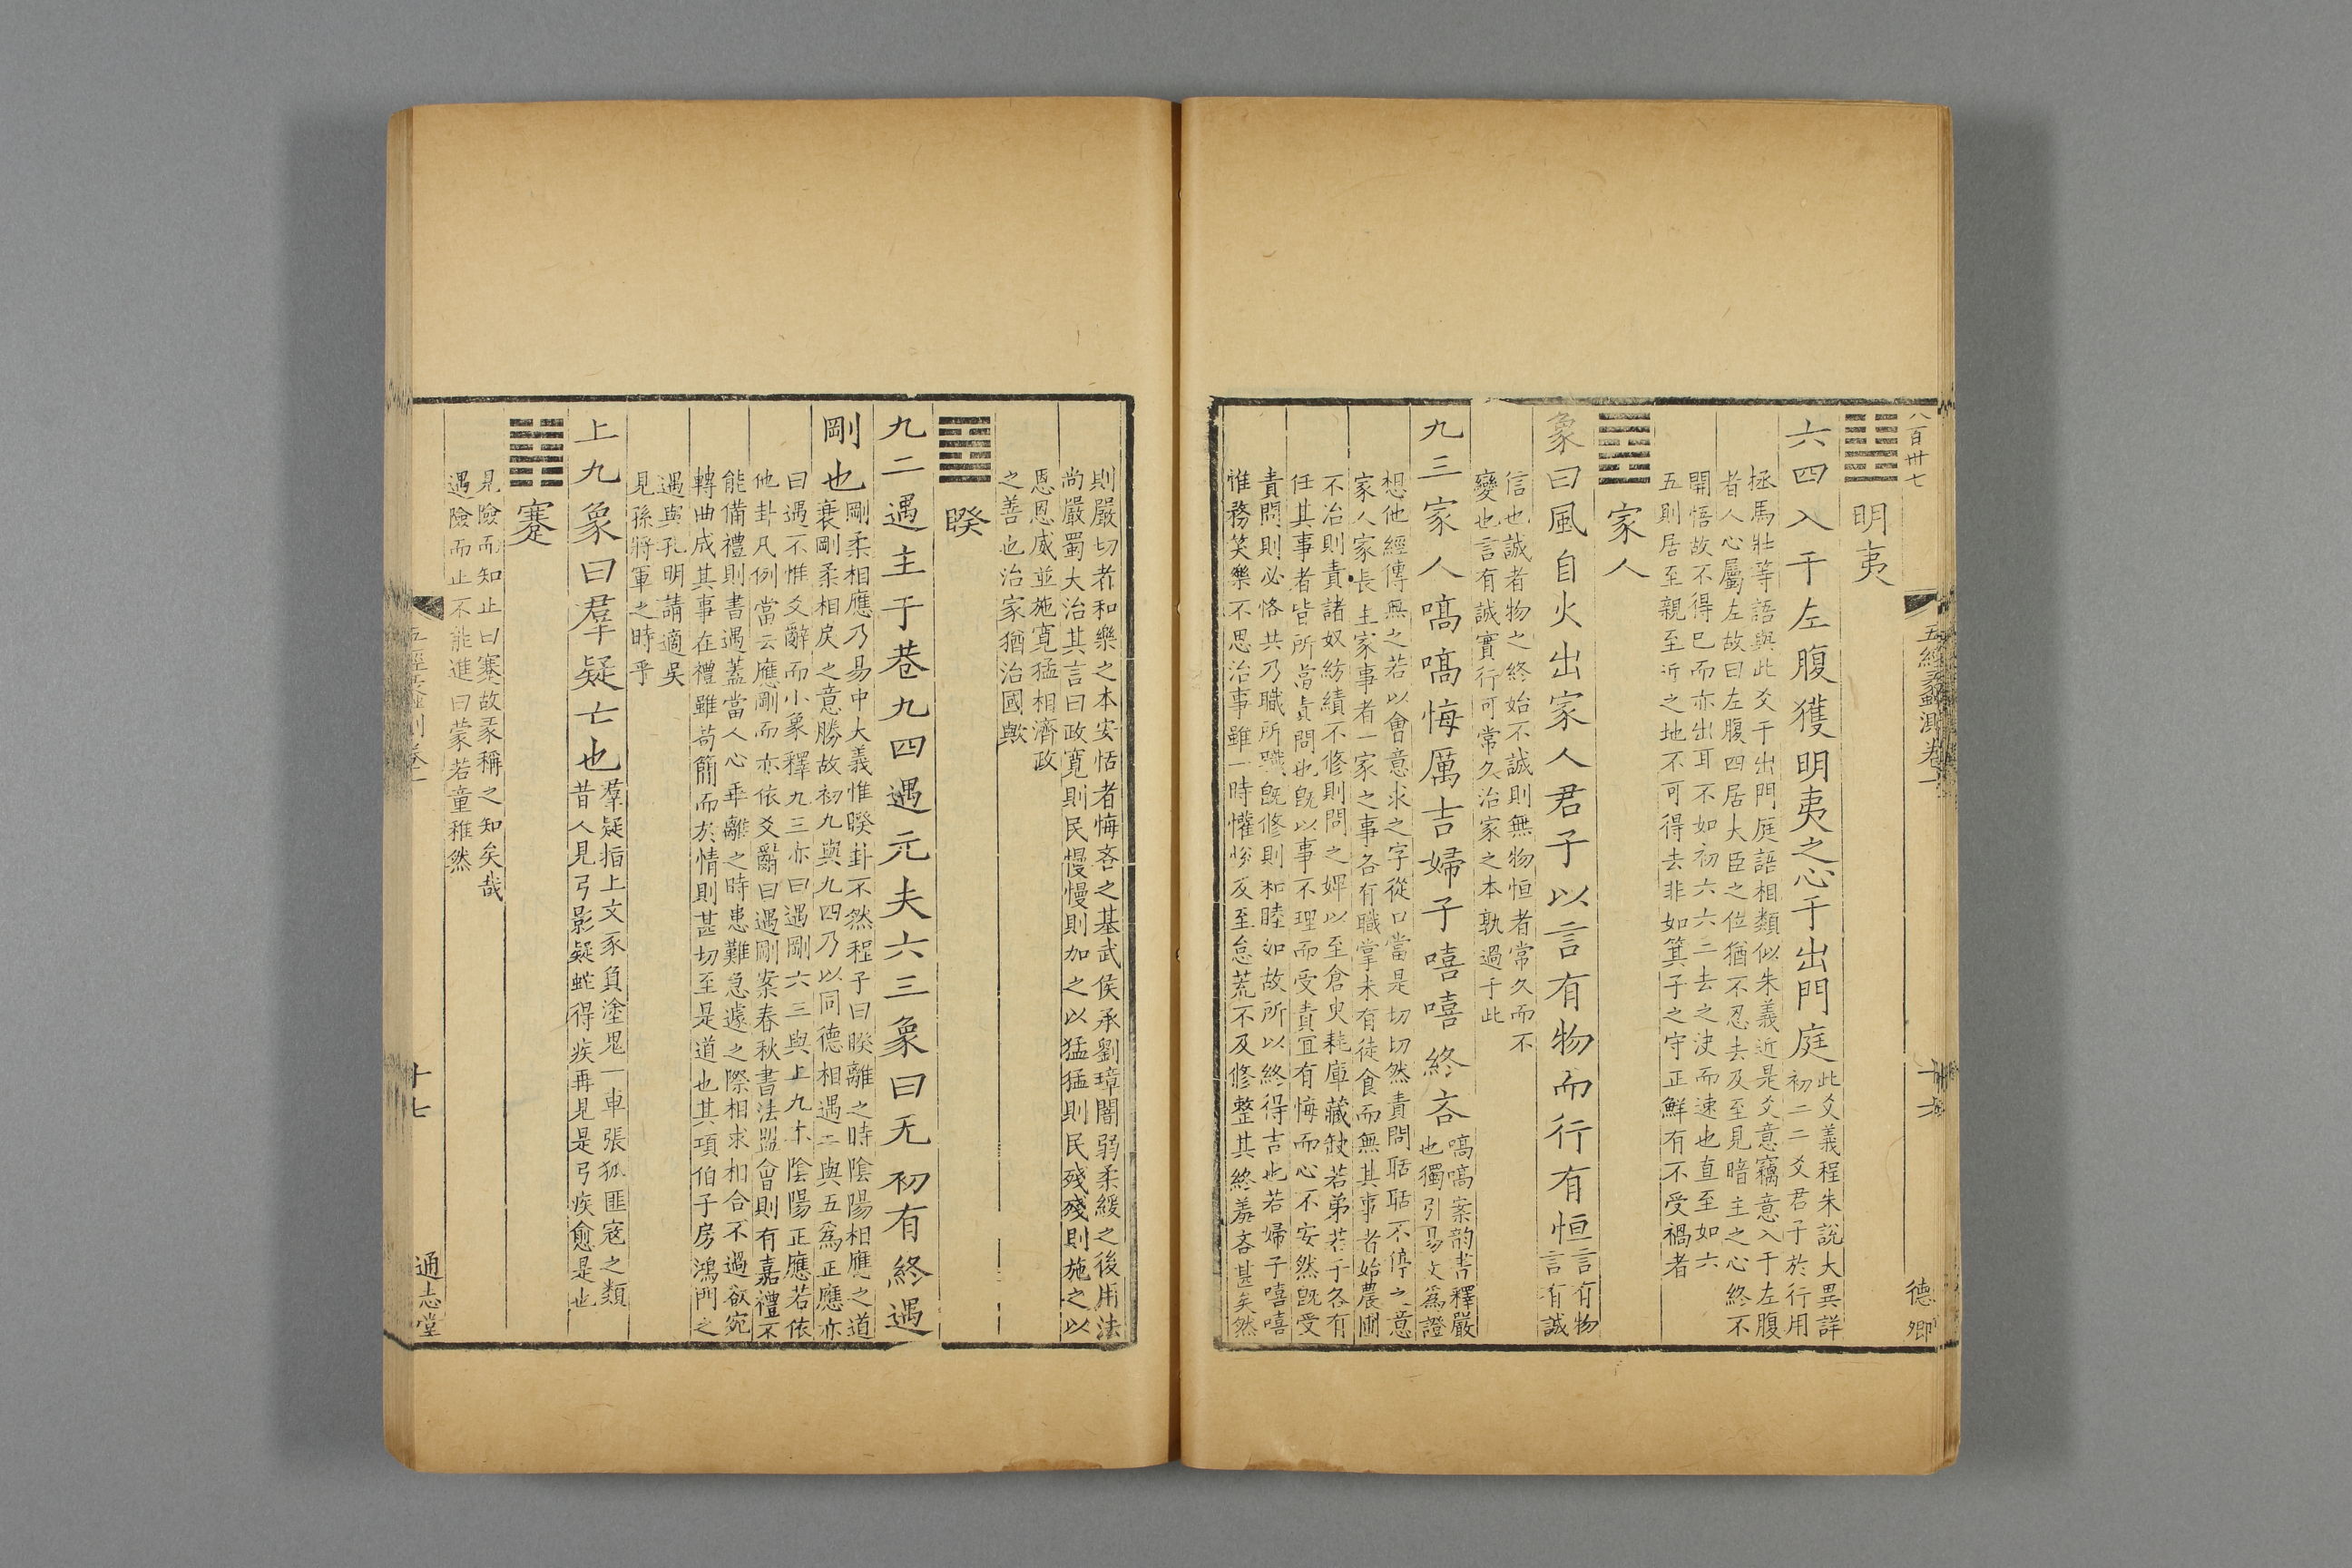 八百卅七
五經蠡測卷一
德卿
明夷
六四入于左腹獲明夷之心于出門庭
此爻義程朱說大異詳
初二二爻君子於行用
拯馬壯等語與此爻于出門庭語相類似朱義近是爻意竊意入于左腹
者人心屬左故曰左腹四居大臣之位猶不忍去及至見暗主之心終不
開悟故不得已而亦出耳不如初六六二去之決而速也直至如六
五則居至親至近之地不可得去非如箕子之守正鮮有不受禍者
家人
象曰風自火出家人君子以言有物而行有恒
言有物
言有誠
信也誠者物之終始不誠則無物恒者常久而不
變也言有誠實行可常久治家之本孰過于此
九三家人嗃嗃悔厲吉婦子嘻嘻終吝
嗃嗃案韵書釋嚴
也獨引易文爲證
想他經傳無之若以會意求之字從口當是切切然責問聒聒不停之意
家人家長主家事者一家之事各有職掌未有徒食而無其事者始農圃
不治則責諸奴紡績不修則問之婢以至倉㕜耗庫藏缺若弟若子各有
任其事者皆所當責問也旣以事不理而受責宜有悔而心不安然旣受
責問則必恪共乃職所職旣修則和睦如故所以終得吉也若婦子嘻嘻
惟務笑樂不思治事雖一時懽悅及至怠荒不及修整其終羞吝甚矣然
則嚴切者和樂之本安恬者悔吝之基武侯承劉璋闇弱柔緩之後用法
尚嚴蜀大治其言曰政寬則民慢慢則加之以猛猛則民殘殘則施之以
恩恩威並施寬猛相濟政
之善也治家猶治國歟
睽
九二遇主于巷九四遇元夫六三象曰无初有終遇
剛也
剛柔相應乃易中大義惟睽卦不然程子曰睽離之時陰陽相應之道
衰剛柔相戾之意勝故初九與九四乃以同德相遇二與五爲正應亦
曰遇不惟爻辭而小象釋九三亦曰遇剛六三與上九本陰陽正應若依
他卦凡例當云應剛而亦依爻辭曰遇剛案春秋書法盟會則有嘉禮不
能備禮則書遇蓋當人心乖離之時患難急遽之際相求相合不過欲宛
轉曲成其事在禮雖苟簡而於情則甚切至是道也其項伯子房鴻門之
遇與孔明請適吳
見孫將軍之時乎
上九象曰羣疑亡也
羣疑指上文豕負塗鬼一車張狐匪寇之類
昔人見弓影疑蛇得疾再見是弓疾愈是也
蹇
見險而知止曰蹇故彖稱之知矣哉
遇險而止不能進曰蒙若童稚然
十七
通志堂